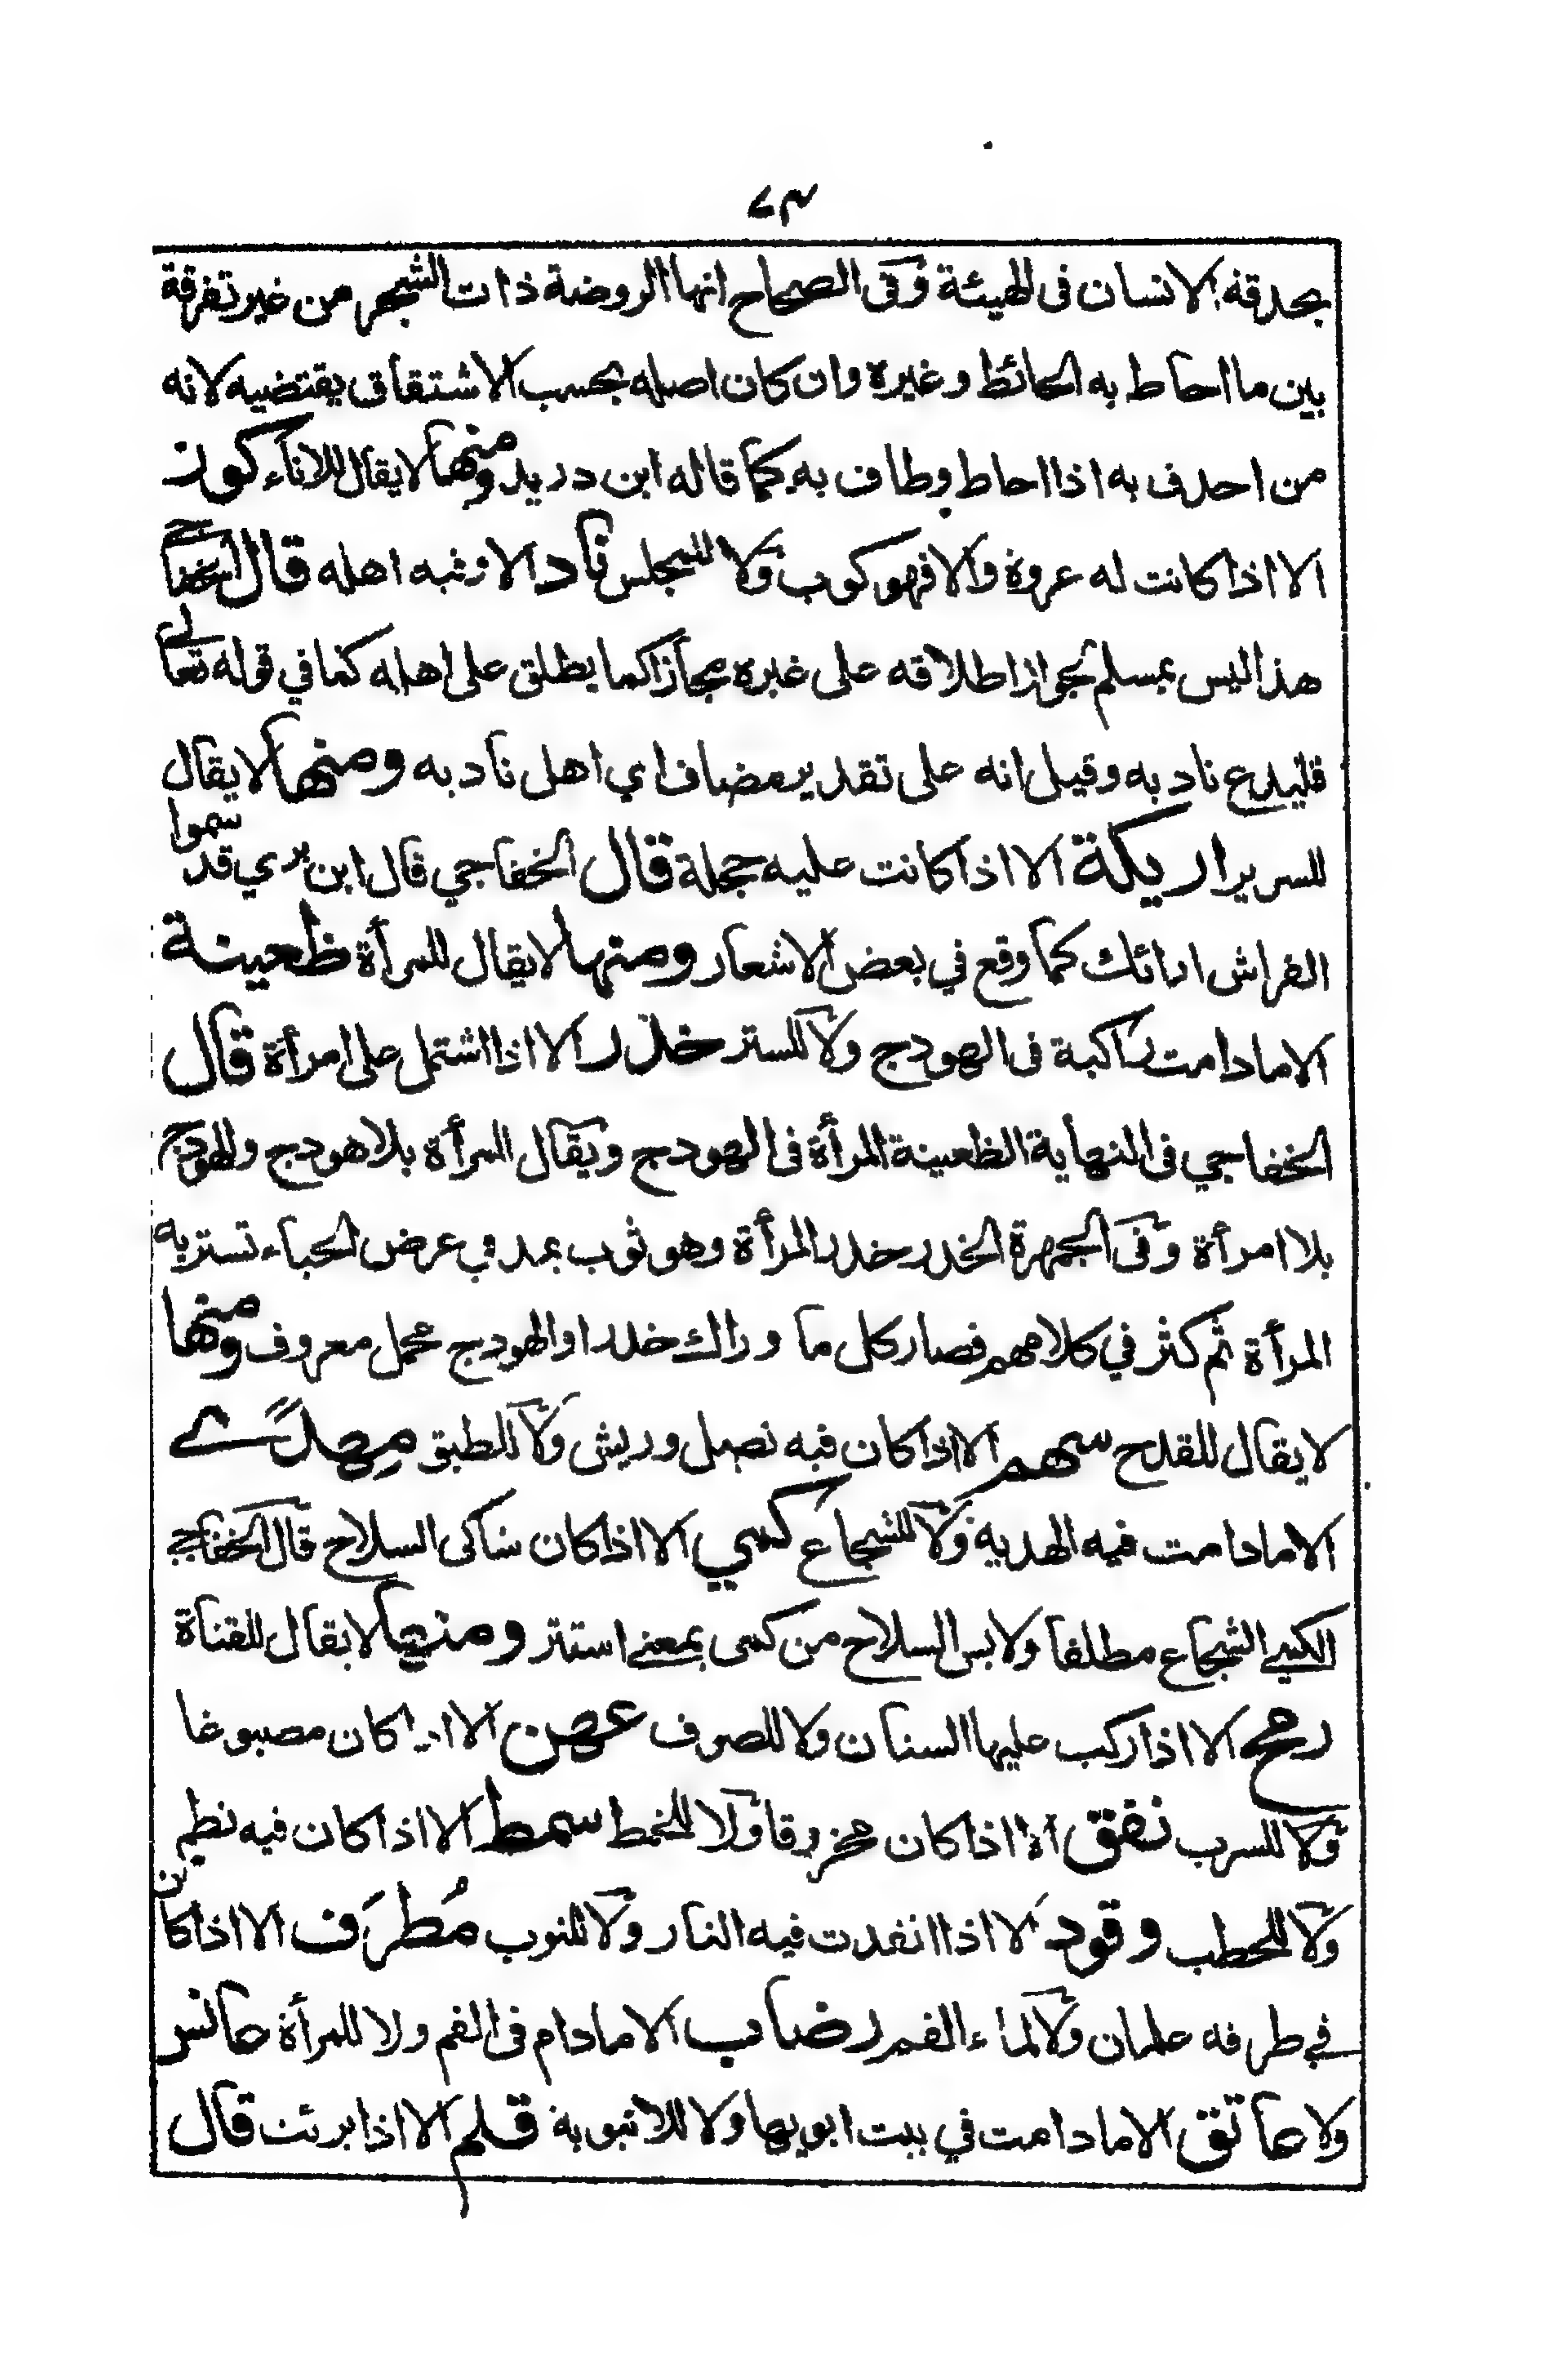 ٧٣
بحدقة الانسان فى الهيئة وفى الصحاح انها الروضة ذات الشجر من غير تفرقة
بين ما احاط به الحائط وغيره وان كان اصله بحسب الاشتقاق يقتضيه لانه
من احدف به اذا احاط وطاف به كما قاله ابن دريد ومنها لا يقال للاناء كوز
الا اذا كانت له عروة والا فهو كوب ولا للمجلس ناد الا وفيه اهله قال الخفاجي
هذا ليس بمسلم لجواز اطلاقه على غيره مجازا كما يطلق على اهله كما في قوله تعالى
فليدع ناديه وقيل انه على تقدير مضاف اي اهل ناديه ومنها لا يقال
للسرير اريكة الا اذا كانت عليه حجلة قال الخفاجي قال ابن بري قد سموا
الفراش ارائك كما وقع في بعض الاشعار ومنها لا يقال للمرأة ظعينة
الا ما دامت راكبة فى الهودج ولا للستر خدر الا اذا اشتمل على امرأة قال
الخفاجي فى النهاية الظعينة المرأة فى الهودج ويقال المرأة بلا هودج وللهودج
بلا امرأة وفى الجمهرة الخدر خدر المرأة وهو ثوب يمد في عرض الخباء تستتر به
المرأة ثم كثر في كلامهم فصار كل ما وراك خدرا والهودج محمل معروف ومنها
لا يقال للقدح سهم الا اذا كان فيه نصل وريش ولا للطبق مِهدًى
الا ما دامت فيه الهدية ولا للشجاع كمي الا اذا كان شاكى السلاح قال الخفاجي
الكمي الشجاع مطلقا ولابس السلاح من كمى بمعنى استتر ومنها لا يقال للقناة
رمح الا اذا ركب عليها السنان ولا للصوف عهن الا اذا كان مصبوغا
ولا للسرب نفق الا اذا كان مخروقا ولا للخيط سمط الا اذا كان فيه نظم
ولا للحطب وقود الا اذا انقدت فيه النار ولا للثوب مُطرَف الا اذا كان
في طرفه علمان ولا لماء الفم رضاب الا ما دام فى الفم ولا للمرأة عانس
ولا عاتق الا ما دامت في بيت ابويها ولا للانبوبة قلم الا اذا بريت قال